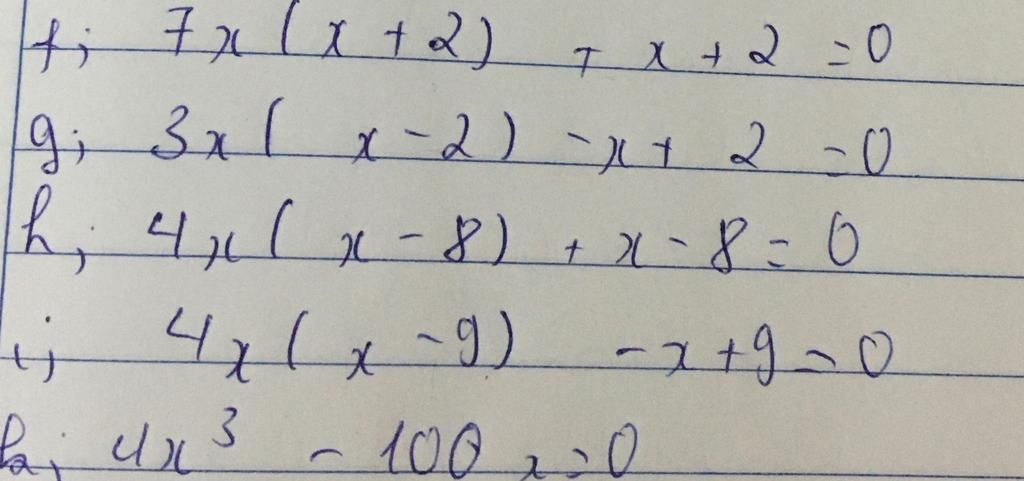 f; 7x(x+2) + x+2 = 0
g; 3x(x-2) -x+2 = 0
h; 4x(x-8) + x-8 = 0
i; 4x(x-9) -x+9 = 0
k; 4x³ - 100x = 0